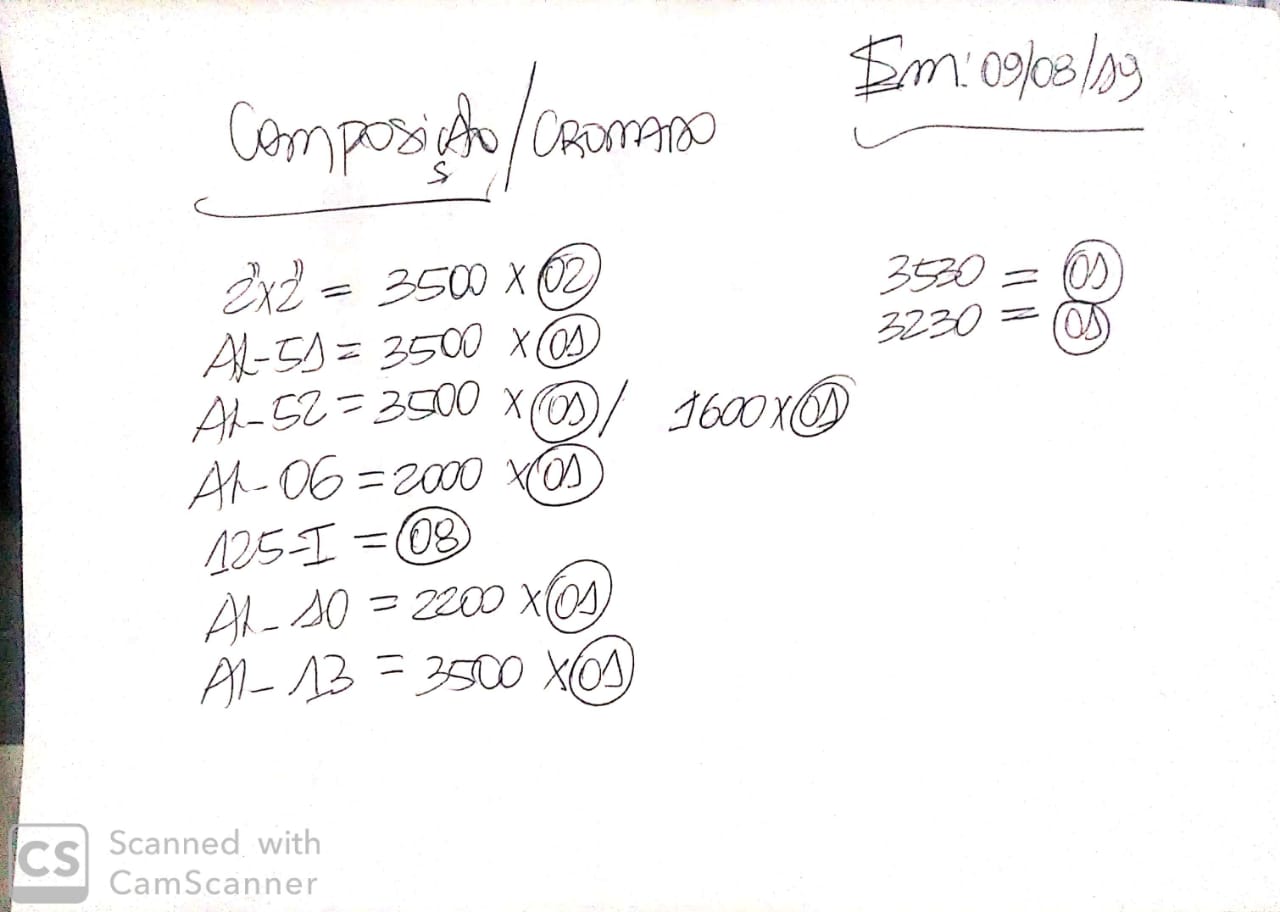 Em: 09/08/19
Composição / CROMADO
2"x2" = 3500 x 02
Al-51 = 3500 x 01
Al-52 = 3500 x 01 / 1600 x 01
Al-06 = 2000 x 01
125-I = 08
Al-10 = 2200 x 01
Al-13 = 3500 x 01
3530 = 01
3230 = 01
CS Scanned with
CamScanner